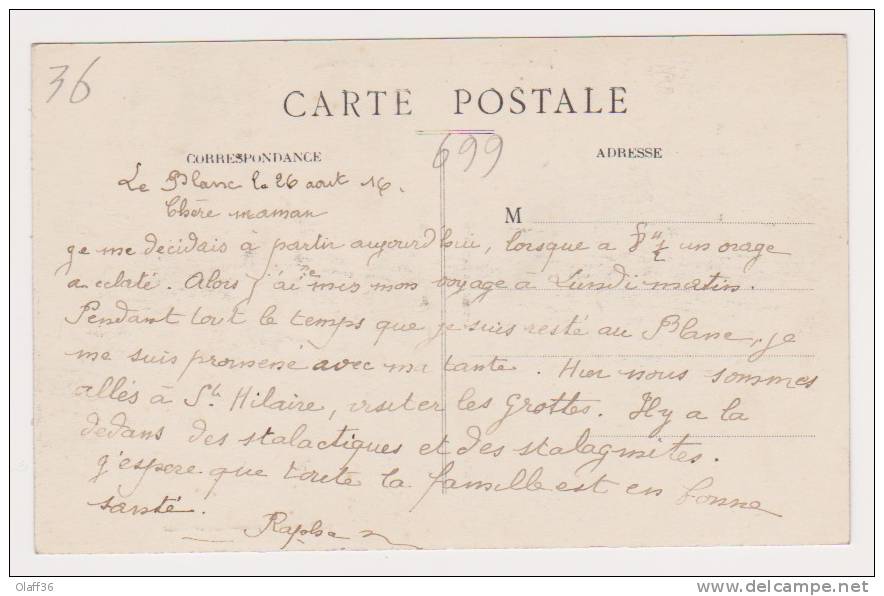 36
CARTE POSTALE
699
CORRESPONDANCE
ADRESSE
M
Le Blanc le 26 aout 16.
Chère maman
je me decidais à partir aujourd'hui, lorsque a 8h ½ un orage
a eclaté. Alors j'ai remis mon voyage à Lundi matin.
Pendant tout le temps que je suis resté au Blanc, je
me suis promené avec ma tante. Hier nous sommes
allés à St Hilaire, visiter les Grottes. Il y a la
dedans des stalactiques et des stalagmites.
j'espere que toute la famille est en bonne
santé.
Olaff36
www.delcampe.net